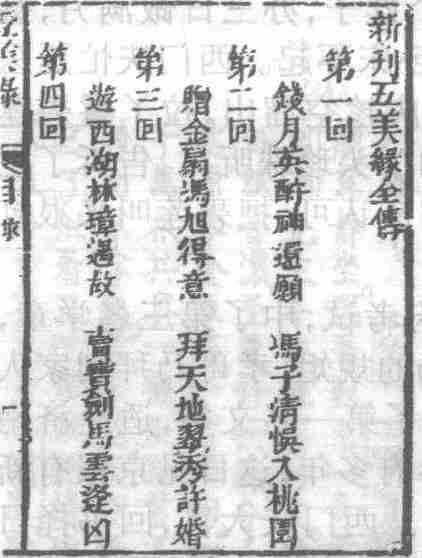 新刊五美緣全傳
第一回
錢月英酧神還願　馮子清悞入桃園
第二回
贈金扇馮旭得意　拜天地翠秀許婚
第三回
遊西湖林璋遇故　賣寶劍馬雲逢凶
第四回
目
一